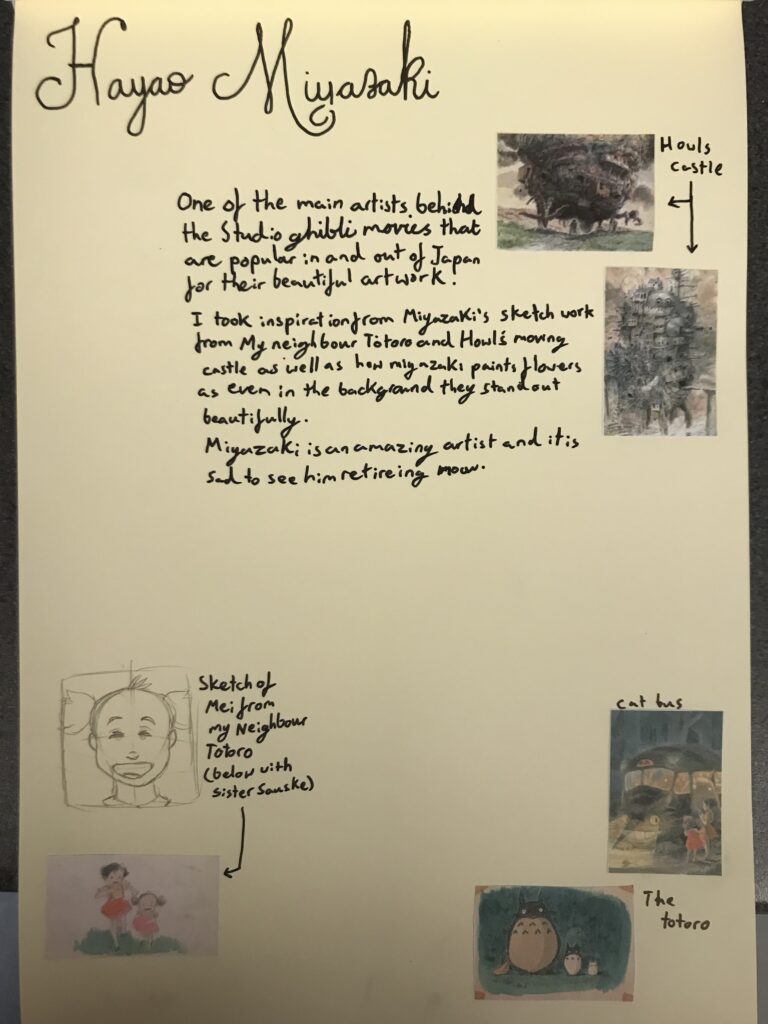 Hayao Miyazaki
Howls
castle
One of the main artists behind
the Studio ghibli movies that
are popular in and out of Japan
for their beautiful artwork.
I took inspiration from Miyazaki's sketch work
from My neighbour Totoro and Howl's moving
castle as well as how miyazaki paints flowers
as even in the background they stand out
beautifully.
Miyazaki is an amazing artist and it is
sad to see him retireing
Sketch of
Mei from
my Neighbour
Totoro
(below with
sister Sauske)
cat bus
The
totoro